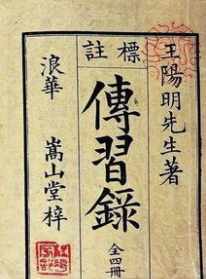 標註
王陽明先生著
傳習錄
全四冊
浪華 嵩山堂梓